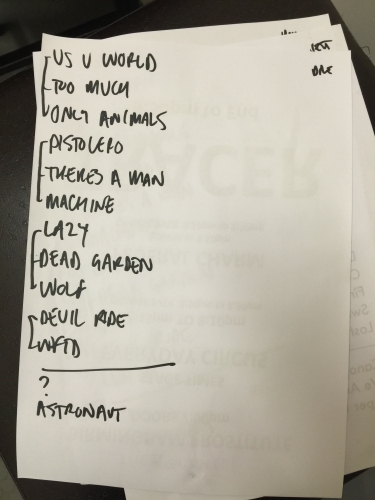 US V WORLD
TOO MUCH
ONLY ANIMALS
PISTOLERO
THERES A MAN
MACHINE
LAZY
DEAD GARDEN
WOLF
DEVIL RIDE
WFTD
?
ASTRONAUT
SET
ONE